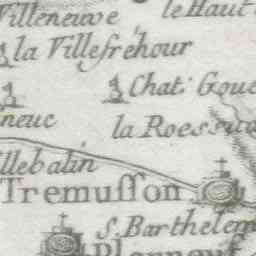 Villeneuve
le Haut
la Villefréhour
Chat. Goue
neuc
la Roessu
llebalin
Tremusson
S. Barthelem
Plerneuf